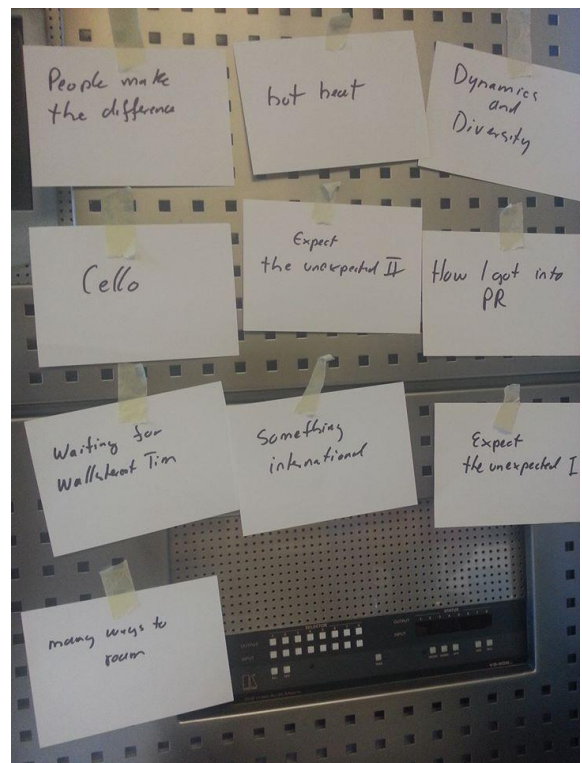 People make
the difference
hot heat
Dynamics
and
Diversity
Cello
Expect
the unexpected II
How I got into
PR
Waiting for
Tim
Something
international
Expect
the unexpected I
many ways to
roam